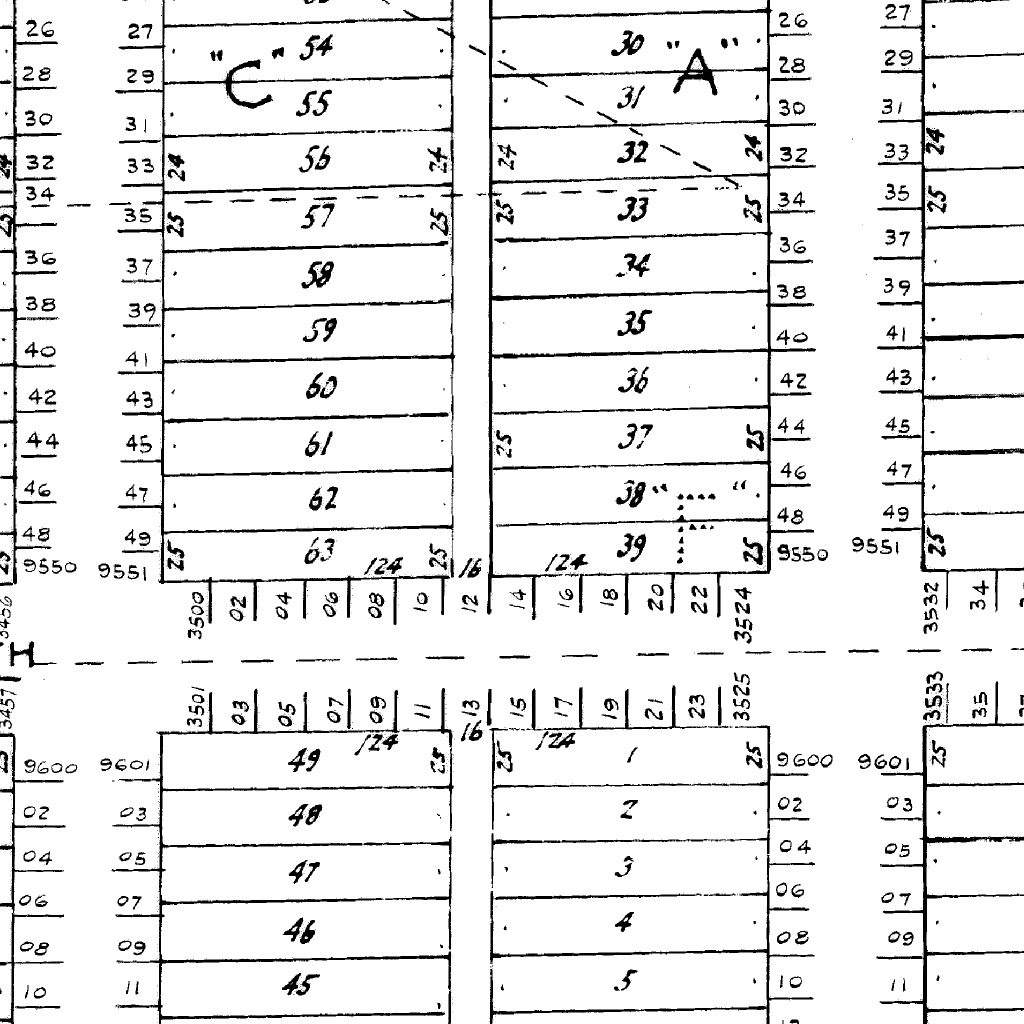 26 27 "C" 54 30 "A" 26 27
28 29 55 31 28 29
30 31 30 31
24 32 33 24 56 24 24 32 24 32 33 24
34
25 35 25 57 25 25 33 25 34 35 25
36 37 58 34 36 37
38 39 59 35 38 39
40 41 60 36 40 41
42 43 42 43
44 45 61 25 37 25 44 45
46 47 62 38 " " 46 47
48 49 63 39 48 49
25 9550 9551 25 124 25 16 124 25 9550 9551 25
3456 3500 02 04 06 08 10 12 14 16 18 20 22 3524 3532 34
H
3457 3501 03 05 07 09 11 13 15 17 19 21 23 3525 3533 35
124 16 124
25 9600 9601 49 25 25 1 25 9600 9601 25
02 03 48 2 02 03
04 05 47 3 04 05
06 07 06 07
08 09 46 4 08 09
10 11 45 5 10 11